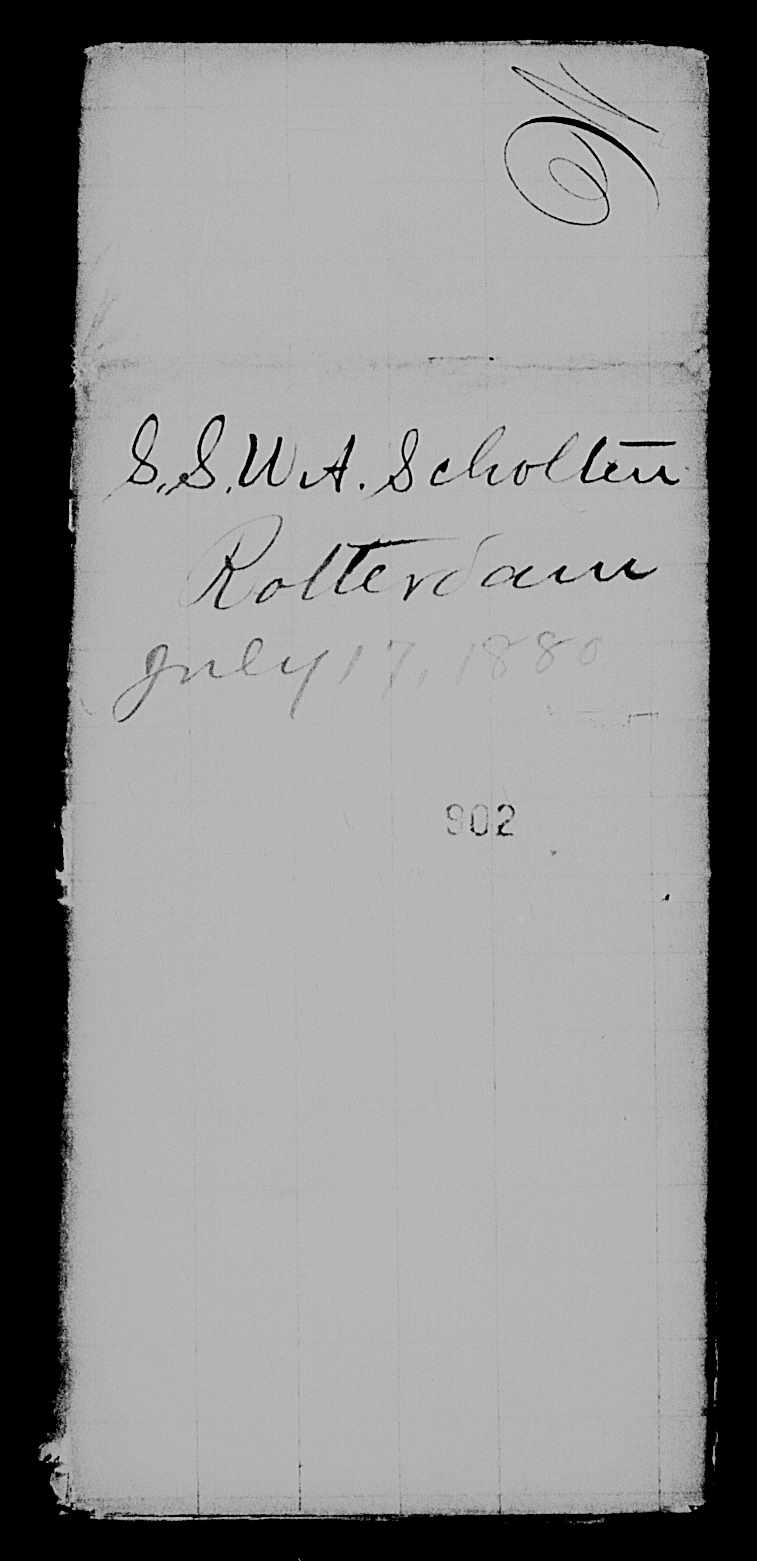 S.S. W.A. Scholten
Rotterdam
July 17, 1880
902